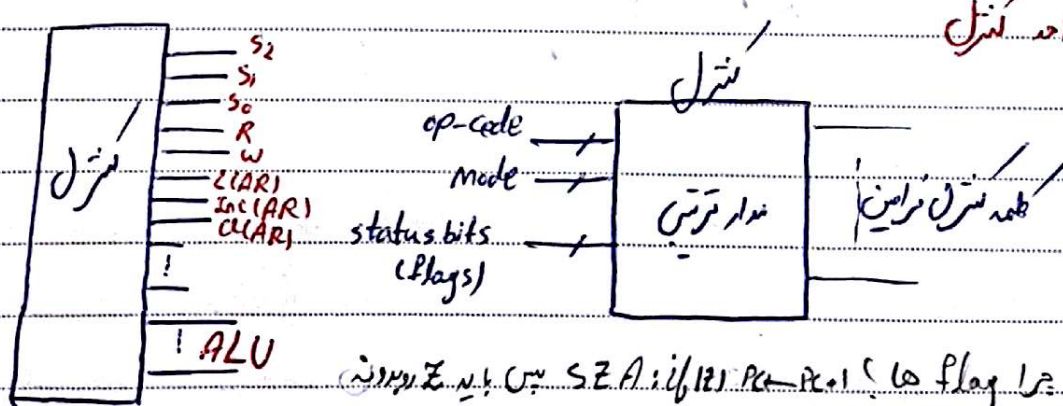 کنترل
S2
S1
S0
R
W
L(AR)
Inc(AR)
Cl(AR)
ALU
کنترل
کنترل
op-code
Mode
status bits
(flags)
مدار ترتیبی
کلمه کنترل فرامین
چرا flag ها ؟ SZA: if(z) PC←PC+1 پس باید Z رو بدونه